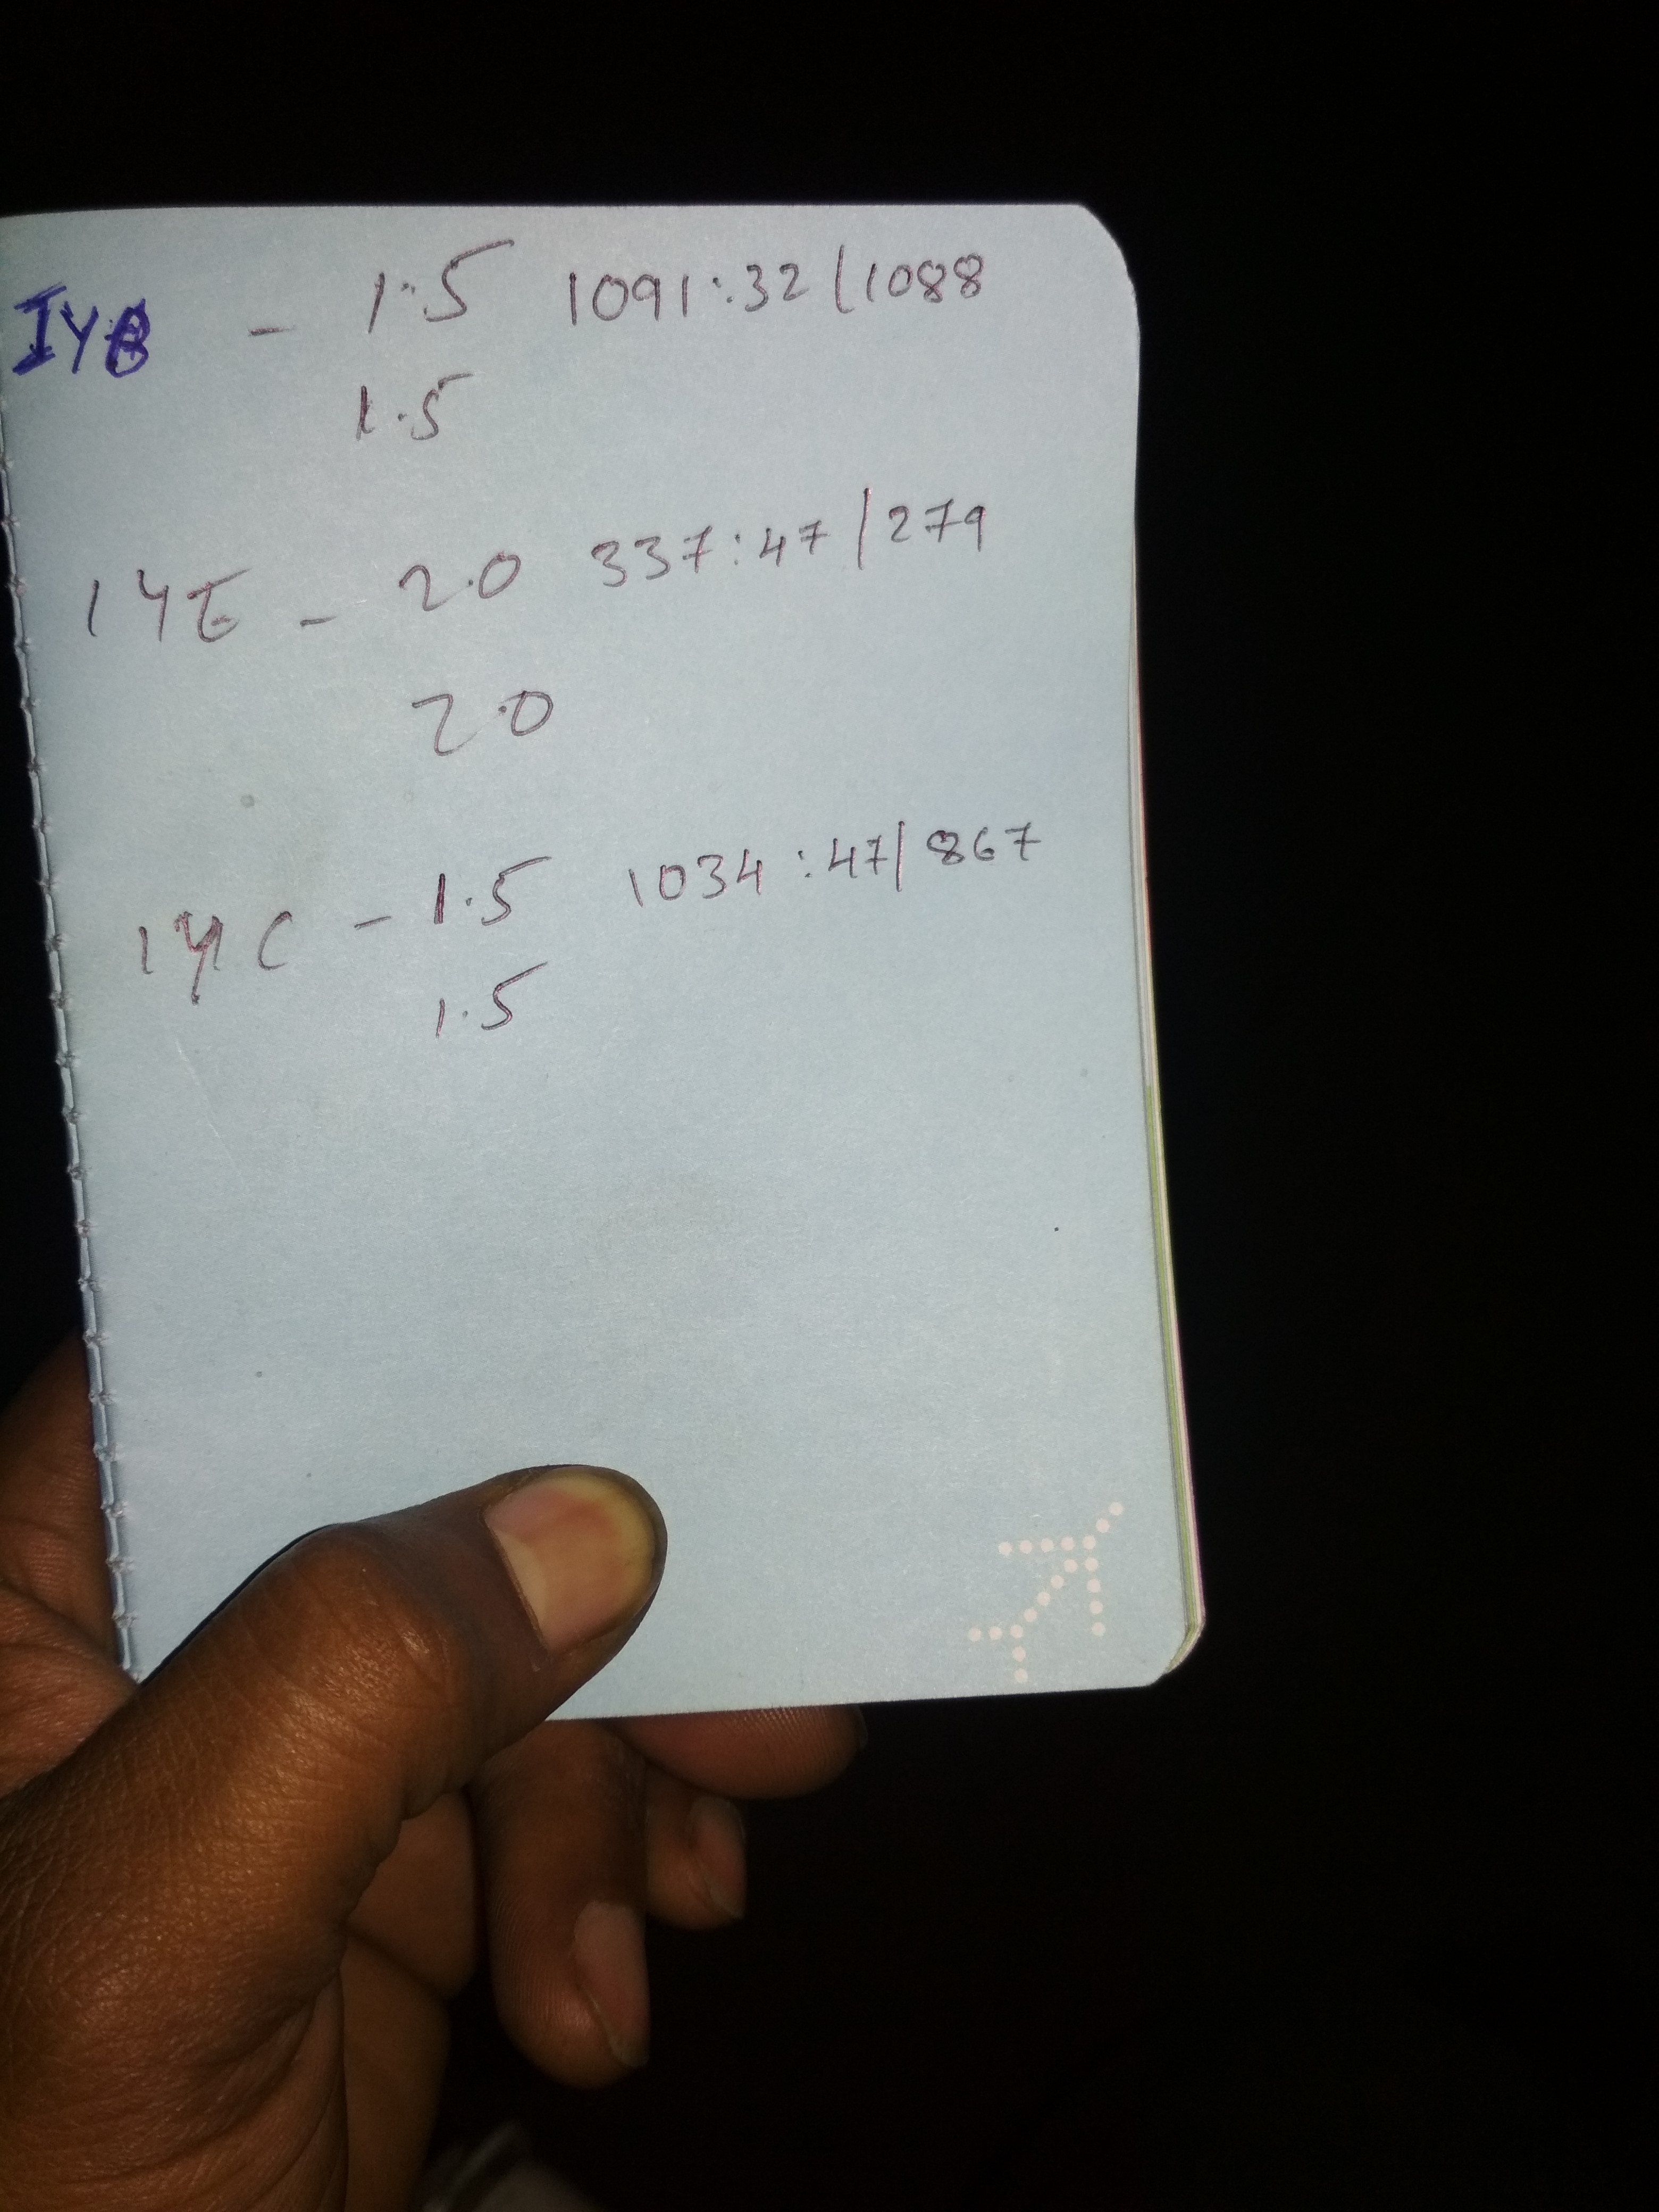 IYB - 1.5 1091:32/1088
1.5
IYE - 2.0 337:47/279
2.0
IYC - 1.5 1034:47/867
1.5